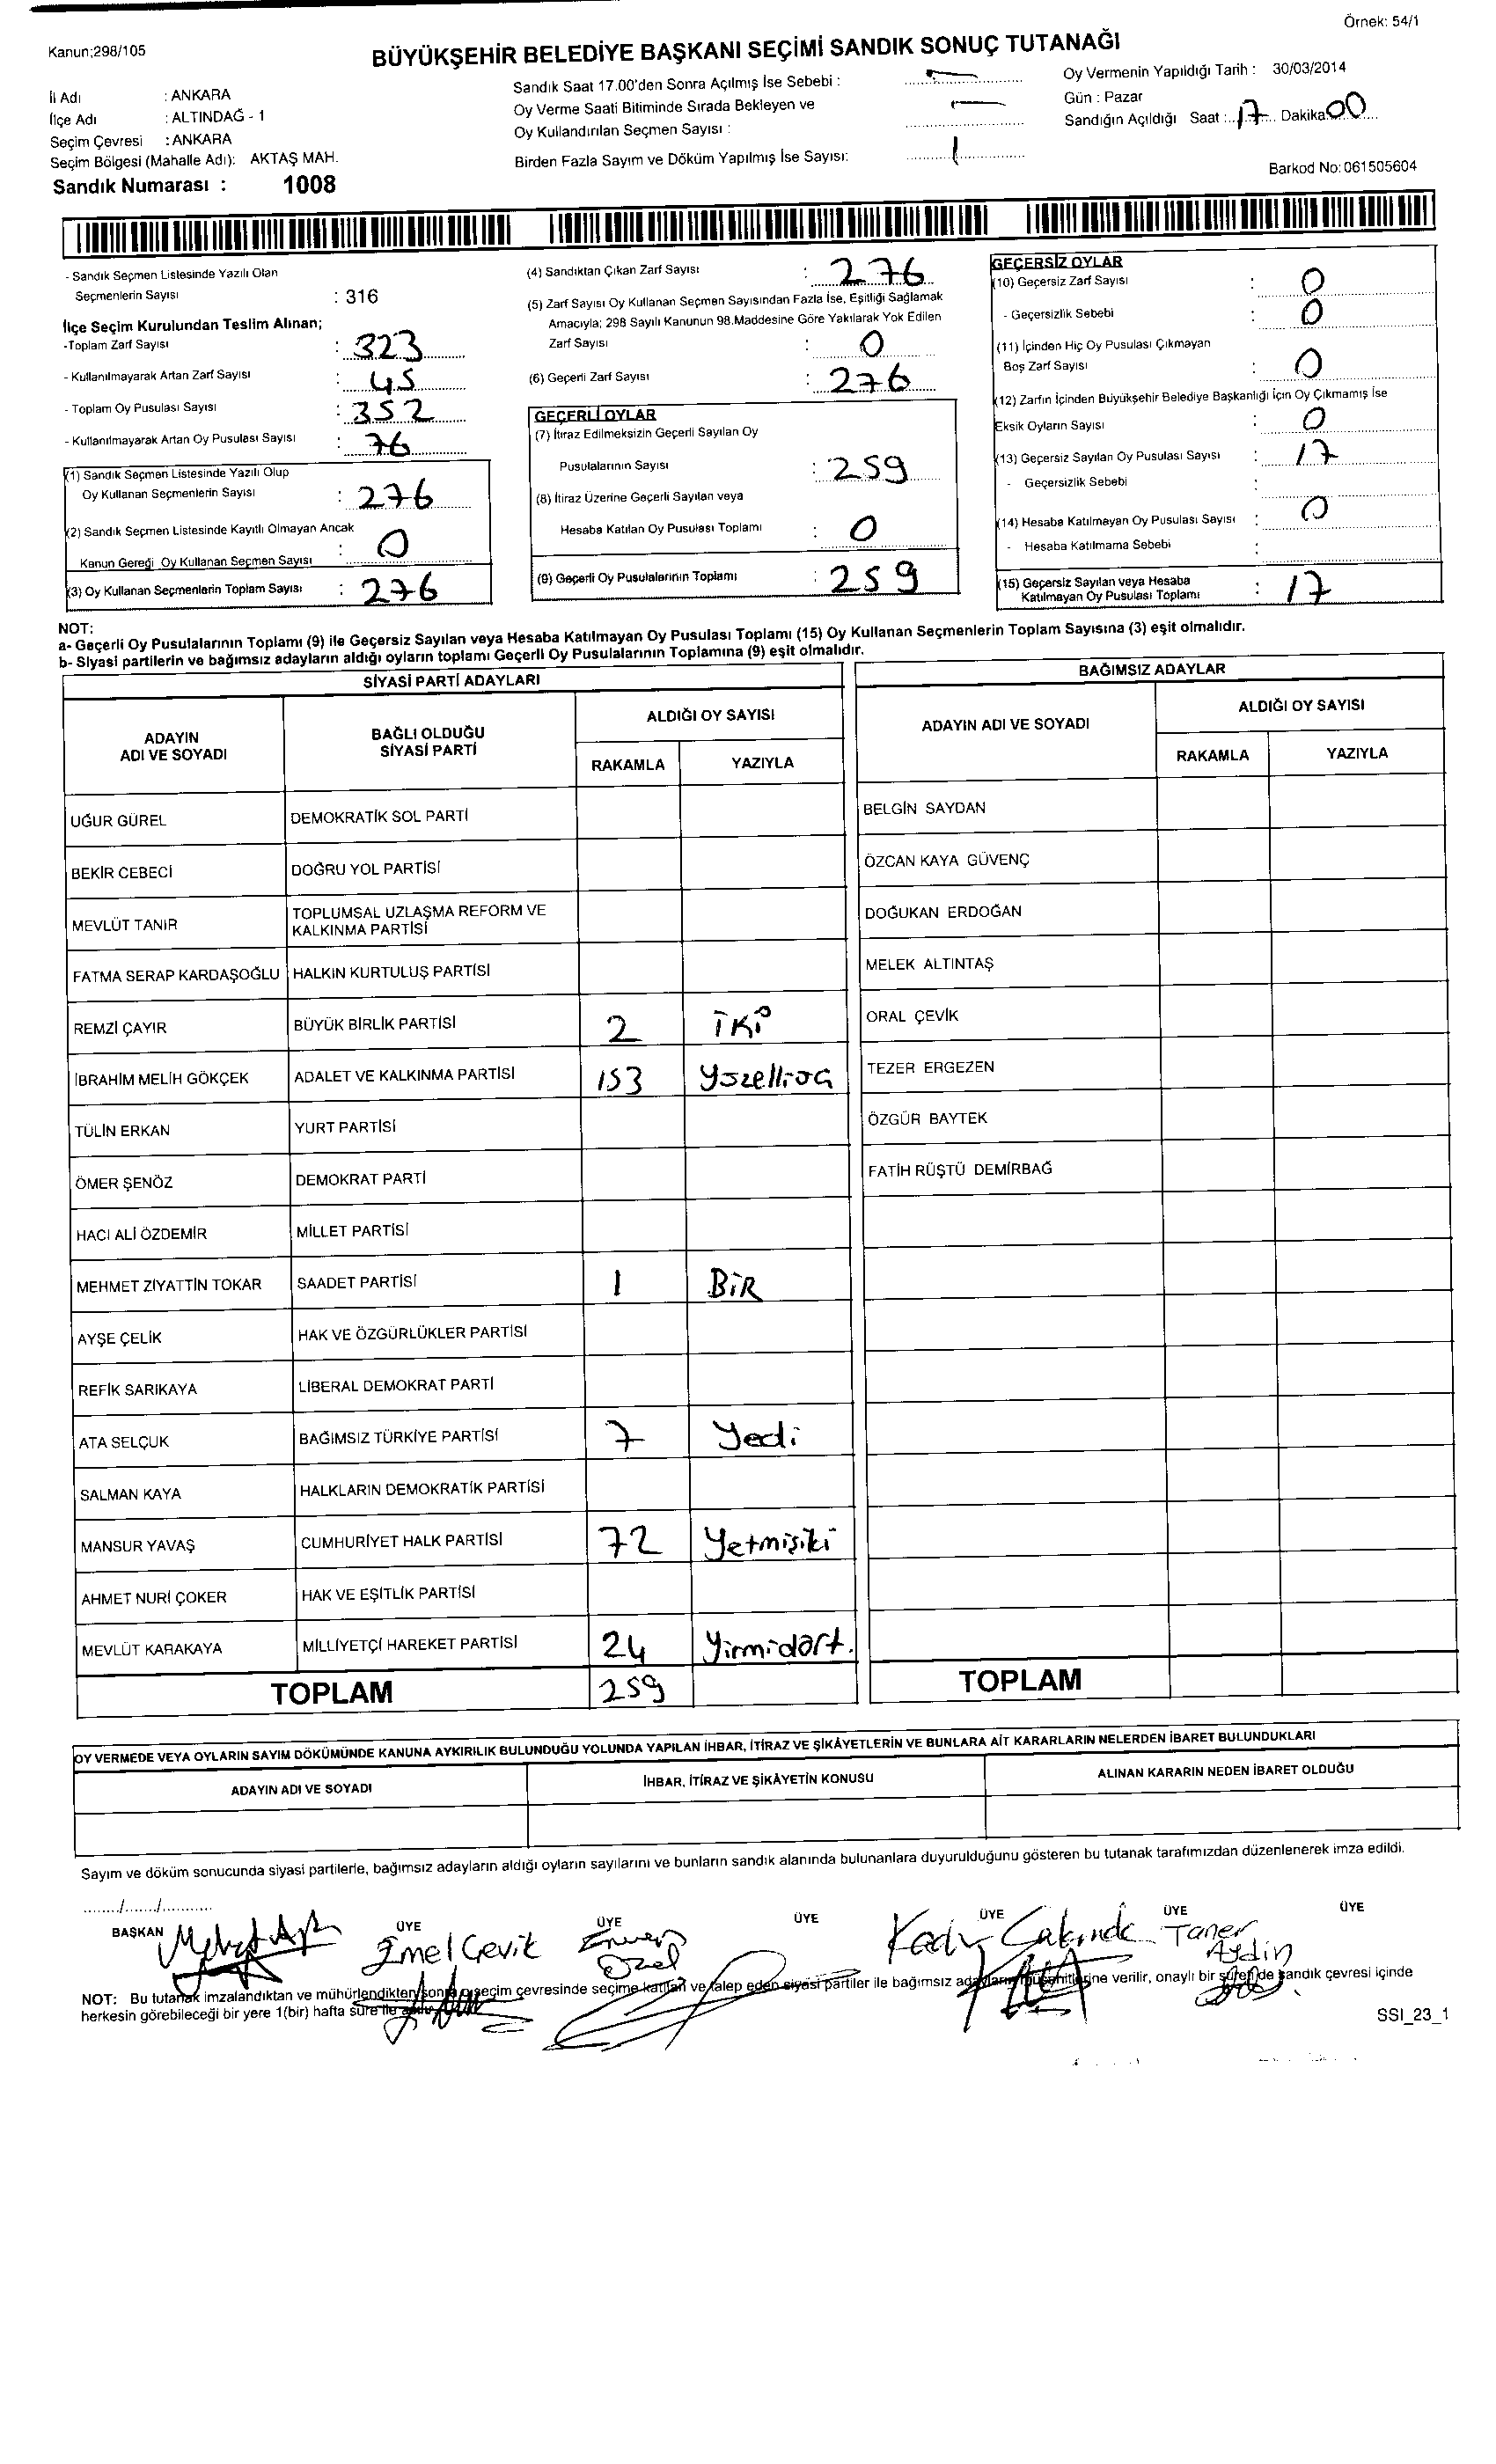 Örnek: 54/1
Kanun;298/105
BÜYÜKŞEHİR BELEDİYE BAŞKANI SEÇİMİ SANDIK SONUÇ TUTANAĞI
İl Adı : ANKARA
İlçe Adı : ALTINDAĞ - 1
Seçim Çevresi : ANKARA
Seçim Bölgesi (Mahalle Adı): AKTAŞ MAH.
Sandık Numarası : 1008
Sandık Saat 17.00'den Sonra Açılmış İse Sebebi :
Oy Verme Saati Bitiminde Sırada Bekleyen ve
Oy Kullandırılan Seçmen Sayısı :
Birden Fazla Sayım ve Döküm Yapılmış İse Sayısı: 1
Oy Vermenin Yapıldığı Tarih : 30/03/2014
Gün : Pazar
Sandığın Açıldığı Saat : 17 Dakika 00
Barkod No: 061505604
- Sandık Seçmen Listesinde Yazılı Olan
Seçmenlerin Sayısı : 316
İlçe Seçim Kurulundan Teslim Alınan;
-Toplam Zarf Sayısı : 323
- Kullanılmayarak Artan Zarf Sayısı : 45
- Toplam Oy Pusulası Sayısı : 352
- Kullanılmayarak Artan Oy Pusulası Sayısı : 76
(1) Sandık Seçmen Listesinde Yazılı Olup
Oy Kullanan Seçmenlerin Sayısı : 276
(2) Sandık Seçmen Listesinde Kayıtlı Olmayan Ancak
Kanun Gereği Oy Kullanan Seçmen Sayısı : 0
(3) Oy Kullanan Seçmenlerin Toplam Sayısı : 276
(4) Sandıktan Çıkan Zarf Sayısı : 276
(5) Zarf Sayısı Oy Kullanan Seçmen Sayısından Fazla İse, Eşitliği Sağlamak
Amacıyla; 298 Sayılı Kanunun 98.Maddesine Göre Yakılarak Yok Edilen
Zarf Sayısı : 0
(6) Geçerli Zarf Sayısı : 276
GEÇERLİ OYLAR
(7) İtiraz Edilmeksizin Geçerli Sayılan Oy
Pusulalarının Sayısı : 259
(8) İtiraz Üzerine Geçerli Sayılan veya
Hesaba Katılan Oy Pusulası Toplamı : 0
(9) Geçerli Oy Pusulalarının Toplamı : 259
GEÇERSİZ OYLAR
(10) Geçersiz Zarf Sayısı : 0
- Geçersizlik Sebebi : 0
(11) İçinden Hiç Oy Pusulası Çıkmayan
Boş Zarf Sayısı : 0
(12) Zarfın İçinden Büyükşehir Belediye Başkanlığı İçin Oy Çıkmamış İse
Eksik Oyların Sayısı : 0
(13) Geçersiz Sayılan Oy Pusulası Sayısı : 17
- Geçersizlik Sebebi :
(14) Hesaba Katılmayan Oy Pusulası Sayısı : 0
- Hesaba Katılmama Sebebi :
(15) Geçersiz Sayılan veya Hesaba
Katılmayan Oy Pusulası Toplamı : 17
NOT:
a- Geçerli Oy Pusulalarının Toplamı (9) ile Geçersiz Sayılan veya Hesaba Katılmayan Oy Pusulası Toplamı (15) Oy Kullanan Seçmenlerin Toplam Sayısına (3) eşit olmalıdır.
b- Siyasi partilerin ve bağımsız adayların aldığı oyların toplamı Geçerli Oy Pusulalarının Toplamına (9) eşit olmalıdır.
SİYASİ PARTİ ADAYLARI
ADAYIN ADI VE SOYADI
BAĞLI OLDUĞU SİYASİ PARTİ
ALDIĞI OY SAYISI
RAKAMLA YAZIYLA
UĞUR GÜREL DEMOKRATİK SOL PARTİ
BEKİR CEBECİ DOĞRU YOL PARTİSİ
MEVLÜT TANIR TOPLUMSAL UZLAŞMA REFORM VE KALKINMA PARTİSİ
FATMA SERAP KARDAŞOĞLU HALKIN KURTULUŞ PARTİSİ
REMZİ ÇAYIR BÜYÜK BİRLİK PARTİSİ 2 İKİ
İBRAHİM MELİH GÖKÇEK ADALET VE KALKINMA PARTİSİ 153
TÜLİN ERKAN YURT PARTİSİ
ÖMER ŞENÖZ DEMOKRAT PARTİ
HACI ALİ ÖZDEMİR MİLLET PARTİSİ
MEHMET ZİYATTİN TOKAR SAADET PARTİSİ 1 BİR
AYŞE ÇELİK HAK VE ÖZGÜRLÜKLER PARTİSİ
REFİK SARIKAYA LİBERAL DEMOKRAT PARTİ
ATA SELÇUK BAĞIMSIZ TÜRKİYE PARTİSİ 7 Yedi
SALMAN KAYA HALKLARIN DEMOKRATİK PARTİSİ
MANSUR YAVAŞ CUMHURİYET HALK PARTİSİ 72 Yetmişiki
AHMET NURİ ÇOKER HAK VE EŞİTLİK PARTİSİ
MEVLÜT KARAKAYA MİLLİYETÇİ HAREKET PARTİSİ 24 Yirmidört.
TOPLAM 259
BAĞIMSIZ ADAYLAR
ADAYIN ADI VE SOYADI
ALDIĞI OY SAYISI
RAKAMLA YAZIYLA
BELGİN SAYDAN
ÖZCAN KAYA GÜVENÇ
DOĞUKAN ERDOĞAN
MELEK ALTINTAŞ
ORAL ÇEVİK
TEZER ERGEZEN
ÖZGÜR BAYTEK
FATİH RÜŞTÜ DEMİRBAĞ
TOPLAM
OY VERMEDE VEYA OYLARIN SAYIM DÖKÜMÜNDE KANUNA AYKIRILIK BULUNDUĞU YOLUNDA YAPILAN İHBAR, İTİRAZ VE ŞİKÂYETLERİN VE BUNLARA AİT KARARLARIN NELERDEN İBARET BULUNDUKLARI
ADAYIN ADI VE SOYADI İHBAR, İTİRAZ VE ŞİKÂYETİN KONUSU ALINAN KARARIN NEDEN İBARET OLDUĞU
Sayım ve döküm sonucunda siyasi partilerle, bağımsız adayların aldığı oyların sayılarını ve bunların sandık alanında bulunanlara duyurulduğunu gösteren bu tutanak tarafımızdan düzenlenerek imza edildi.
......../......./...........
BAŞKAN ÜYE ÜYE ÜYE ÜYE ÜYE ÜYE
Emel Çevik Enver Özel Kadir Taner Aydın
NOT: Bu tutanak imzalandıktan ve mühürlendikten sonra o seçim çevresinde seçime katılan ve talep eden siyasi partiler ile bağımsız adayların müşahitlerine verilir, onaylı bir sureti de sandık çevresi içinde
herkesin görebileceği bir yere 1(bir) hafta süre ile
SSI_23_1